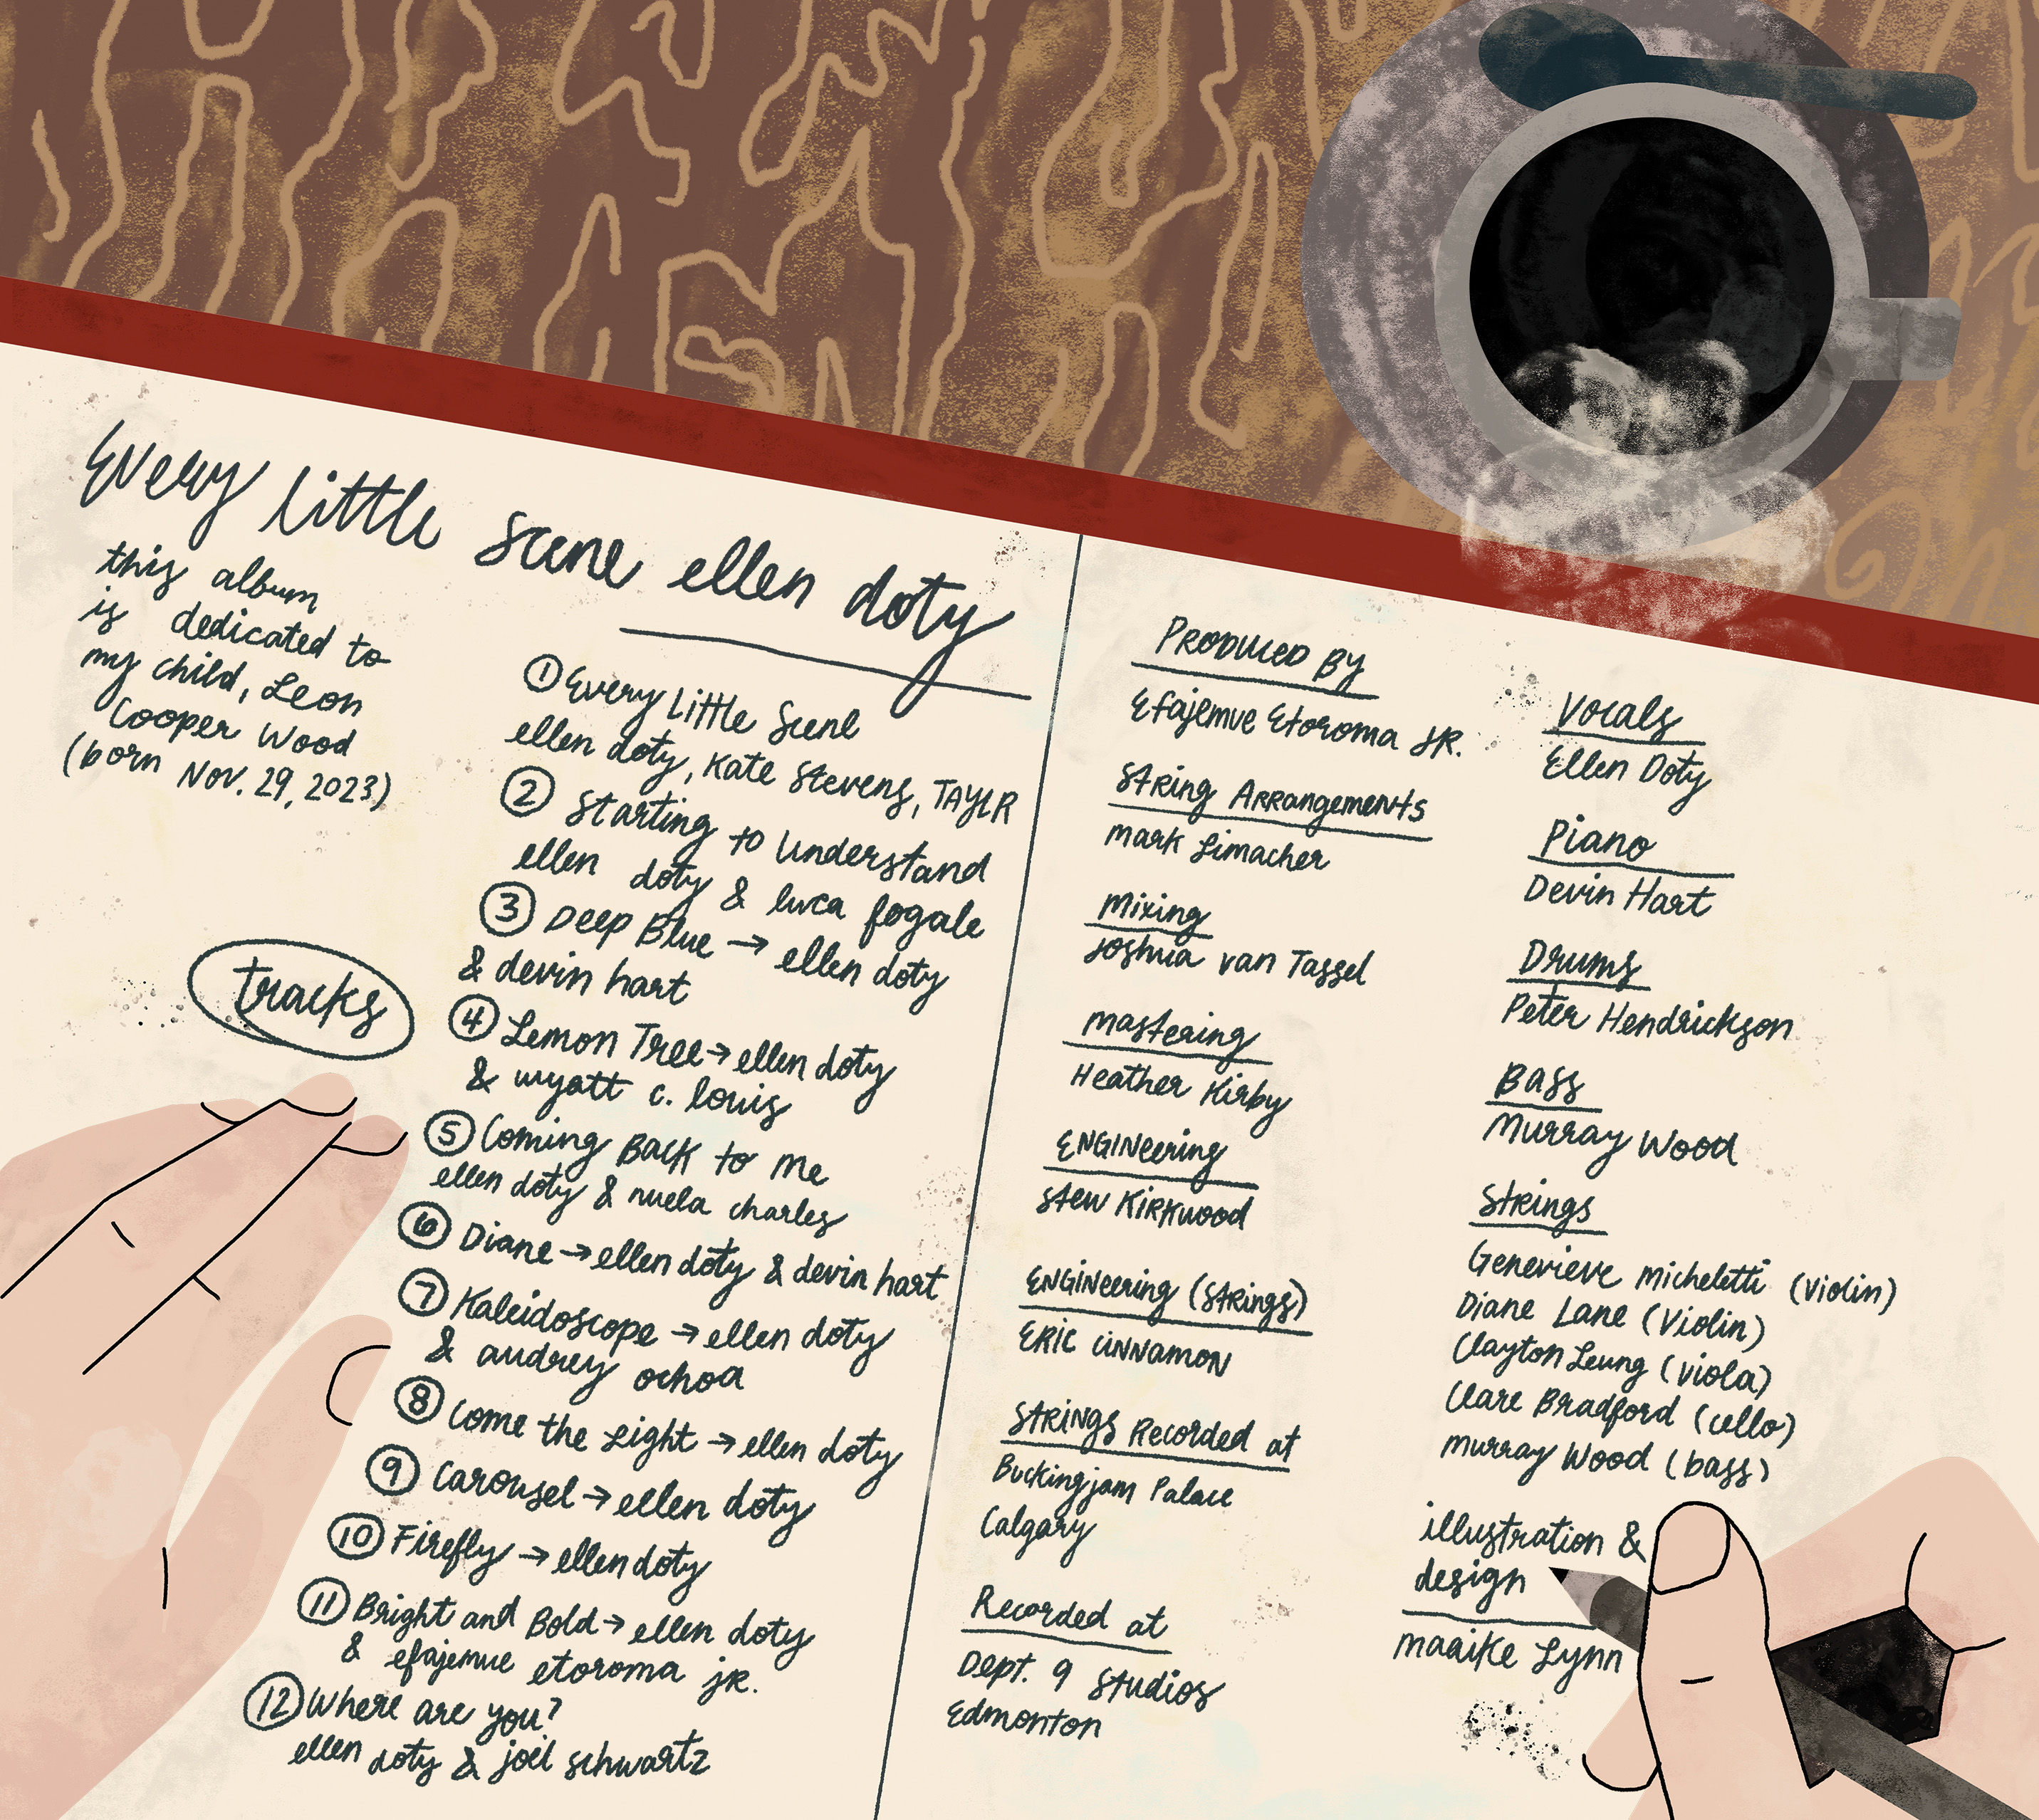 Every little scene ellen doty
this album
is dedicated to
my child, Leon
Cooper Wood
(born Nov. 29, 2023)
tracks
① Every Little Scene
ellen doty, Kate Stevens, TAYLR
② Starting to Understand
ellen doty & luca fogale
③ Deep Blue → ellen doty
& devin hart
④ Lemon Tree → ellen doty
& wyatt c. louis
⑤ Coming Back to Me
ellen doty & nuela charles
⑥ Diane → ellen doty & devin hart
⑦ Kaleidoscope → ellen doty
& audrey ochoa
⑧ Come the Light → ellen doty
⑨ Carousel → ellen doty
⑩ Firefly → ellen doty
⑪ Bright and Bold → ellen doty
& efajemue etoroma jr.
⑫ Where are you?
ellen doty & joel schwartz
Produced By
Efajemue Etoroma JR.
String Arrangements
Mark Limacher
Mixing
Joshua van Tassel
Mastering
Heather Kirby
Engineering
Stew Kirkwood
Engineering (Strings)
Eric Cinnamon
Strings Recorded at
Buckingjam Palace
Calgary
Recorded at
Dept. 9 Studios
Edmonton
Vocals
Ellen Doty
Piano
Devin Hart
Drums
Peter Hendrickson
Bass
Murray Wood
Strings
Genevieve Micheletti (violin)
Diane Lane (violin)
Clayton Leung (viola)
Clare Bradford (cello)
Murray Wood (bass)
illustration &
design
maaike Lynn